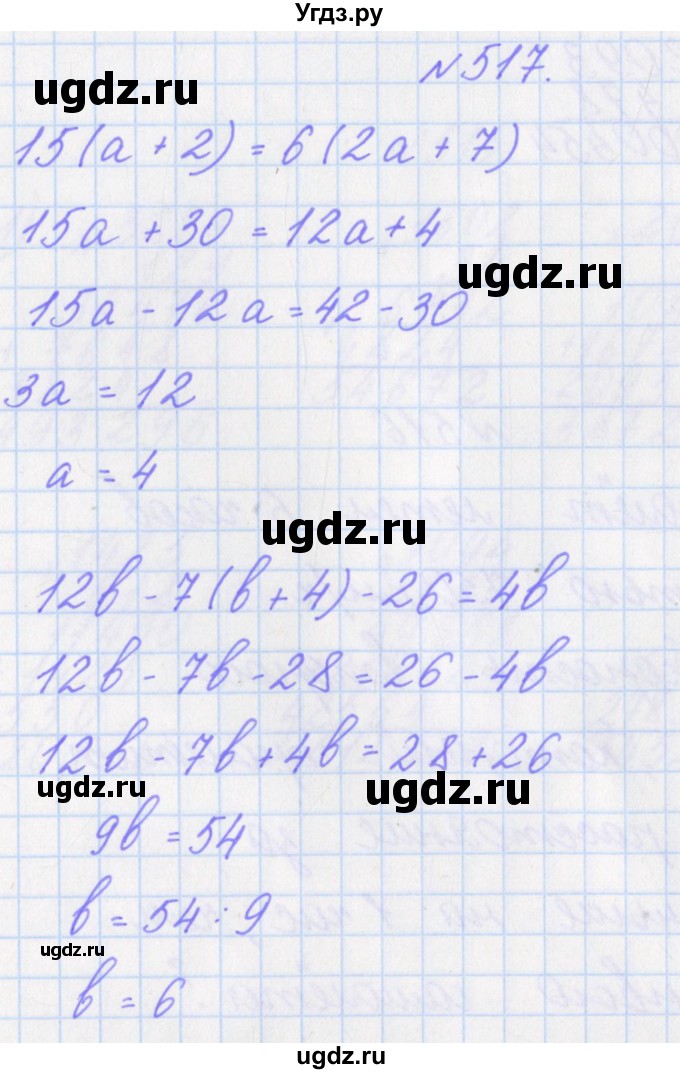 Угдз.ру
№517.
ugdz.ru
15(a + 2) = 6(2a + 7)
15a + 30 = 12a + 4
ugdz.ru
15a - 12a = 42 - 30
3a = 12
a = 4
ugdz.ru
12в - 7(в + 4) - 26 = 4в
12в - 7в - 28 = 26 - 4в
12в - 7в + 4в = 28 + 26
ugdz.ru
ugdz.ru
9в = 54
в = 54 : 9
ugdz.ru
в = 6
ugdz.ru